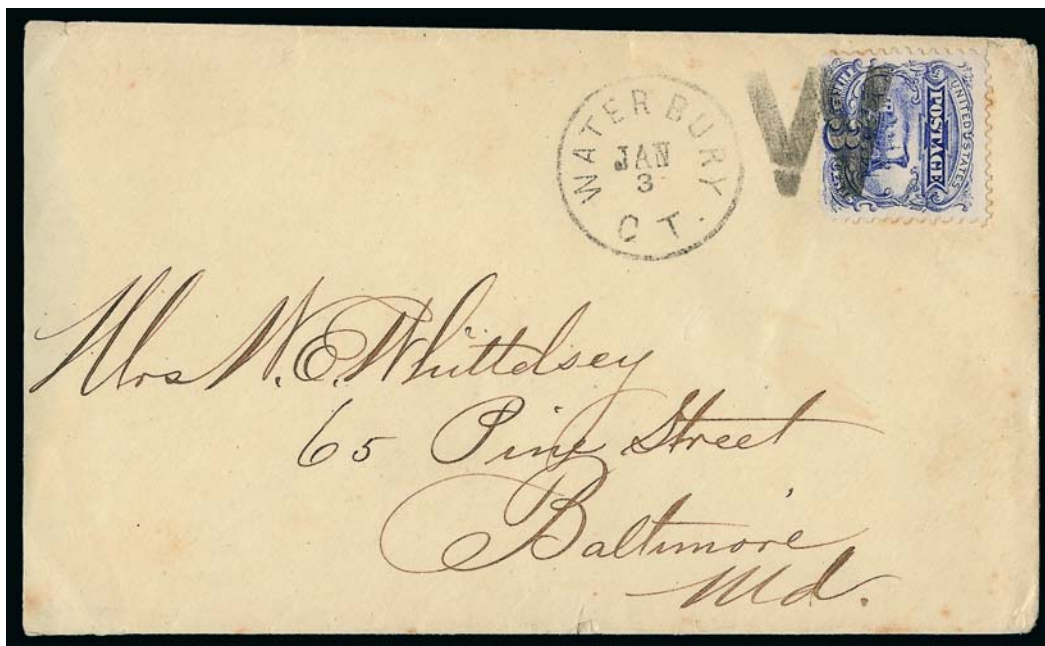 WATERBURY
JAN
3
CT.
W
UNITED STATES
POSTAGE
3
Mrs W. E. Whittelsey
65 Pine Street
Baltimore
Md.